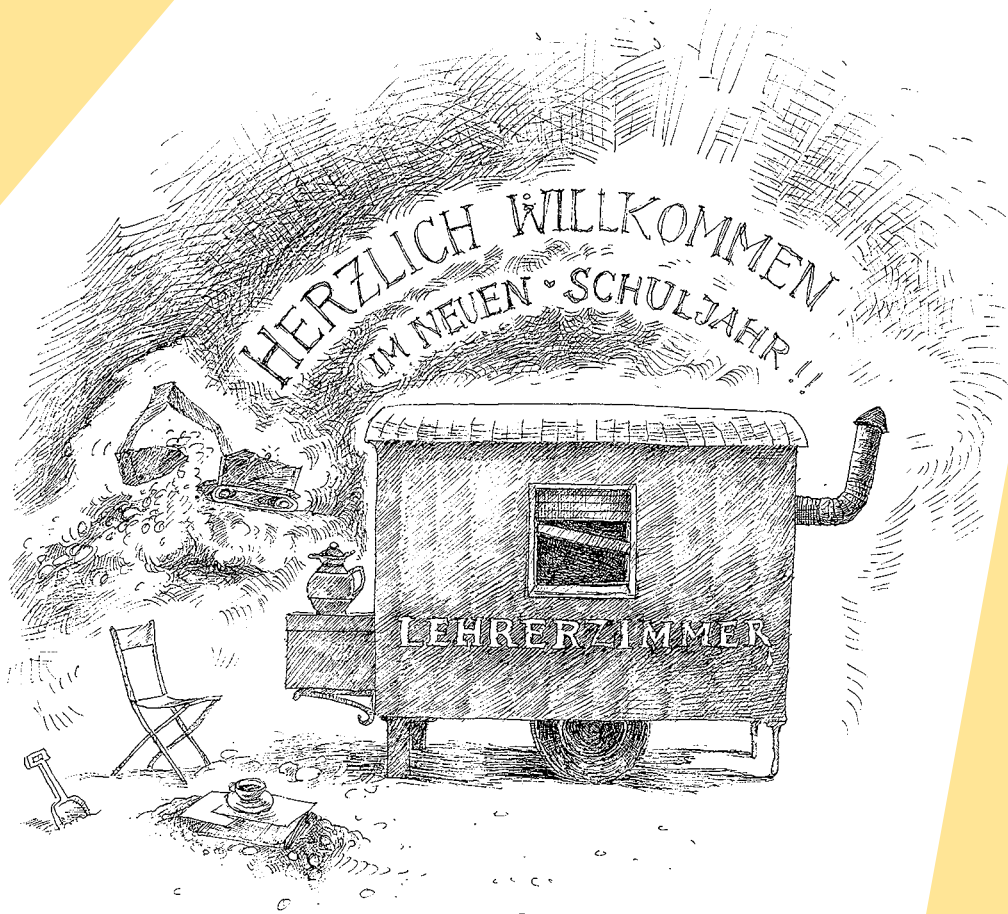 HERZLICH WILLKOMMEN
IM NEUEN SCHULJAHR!!
LEHRERZIMMER